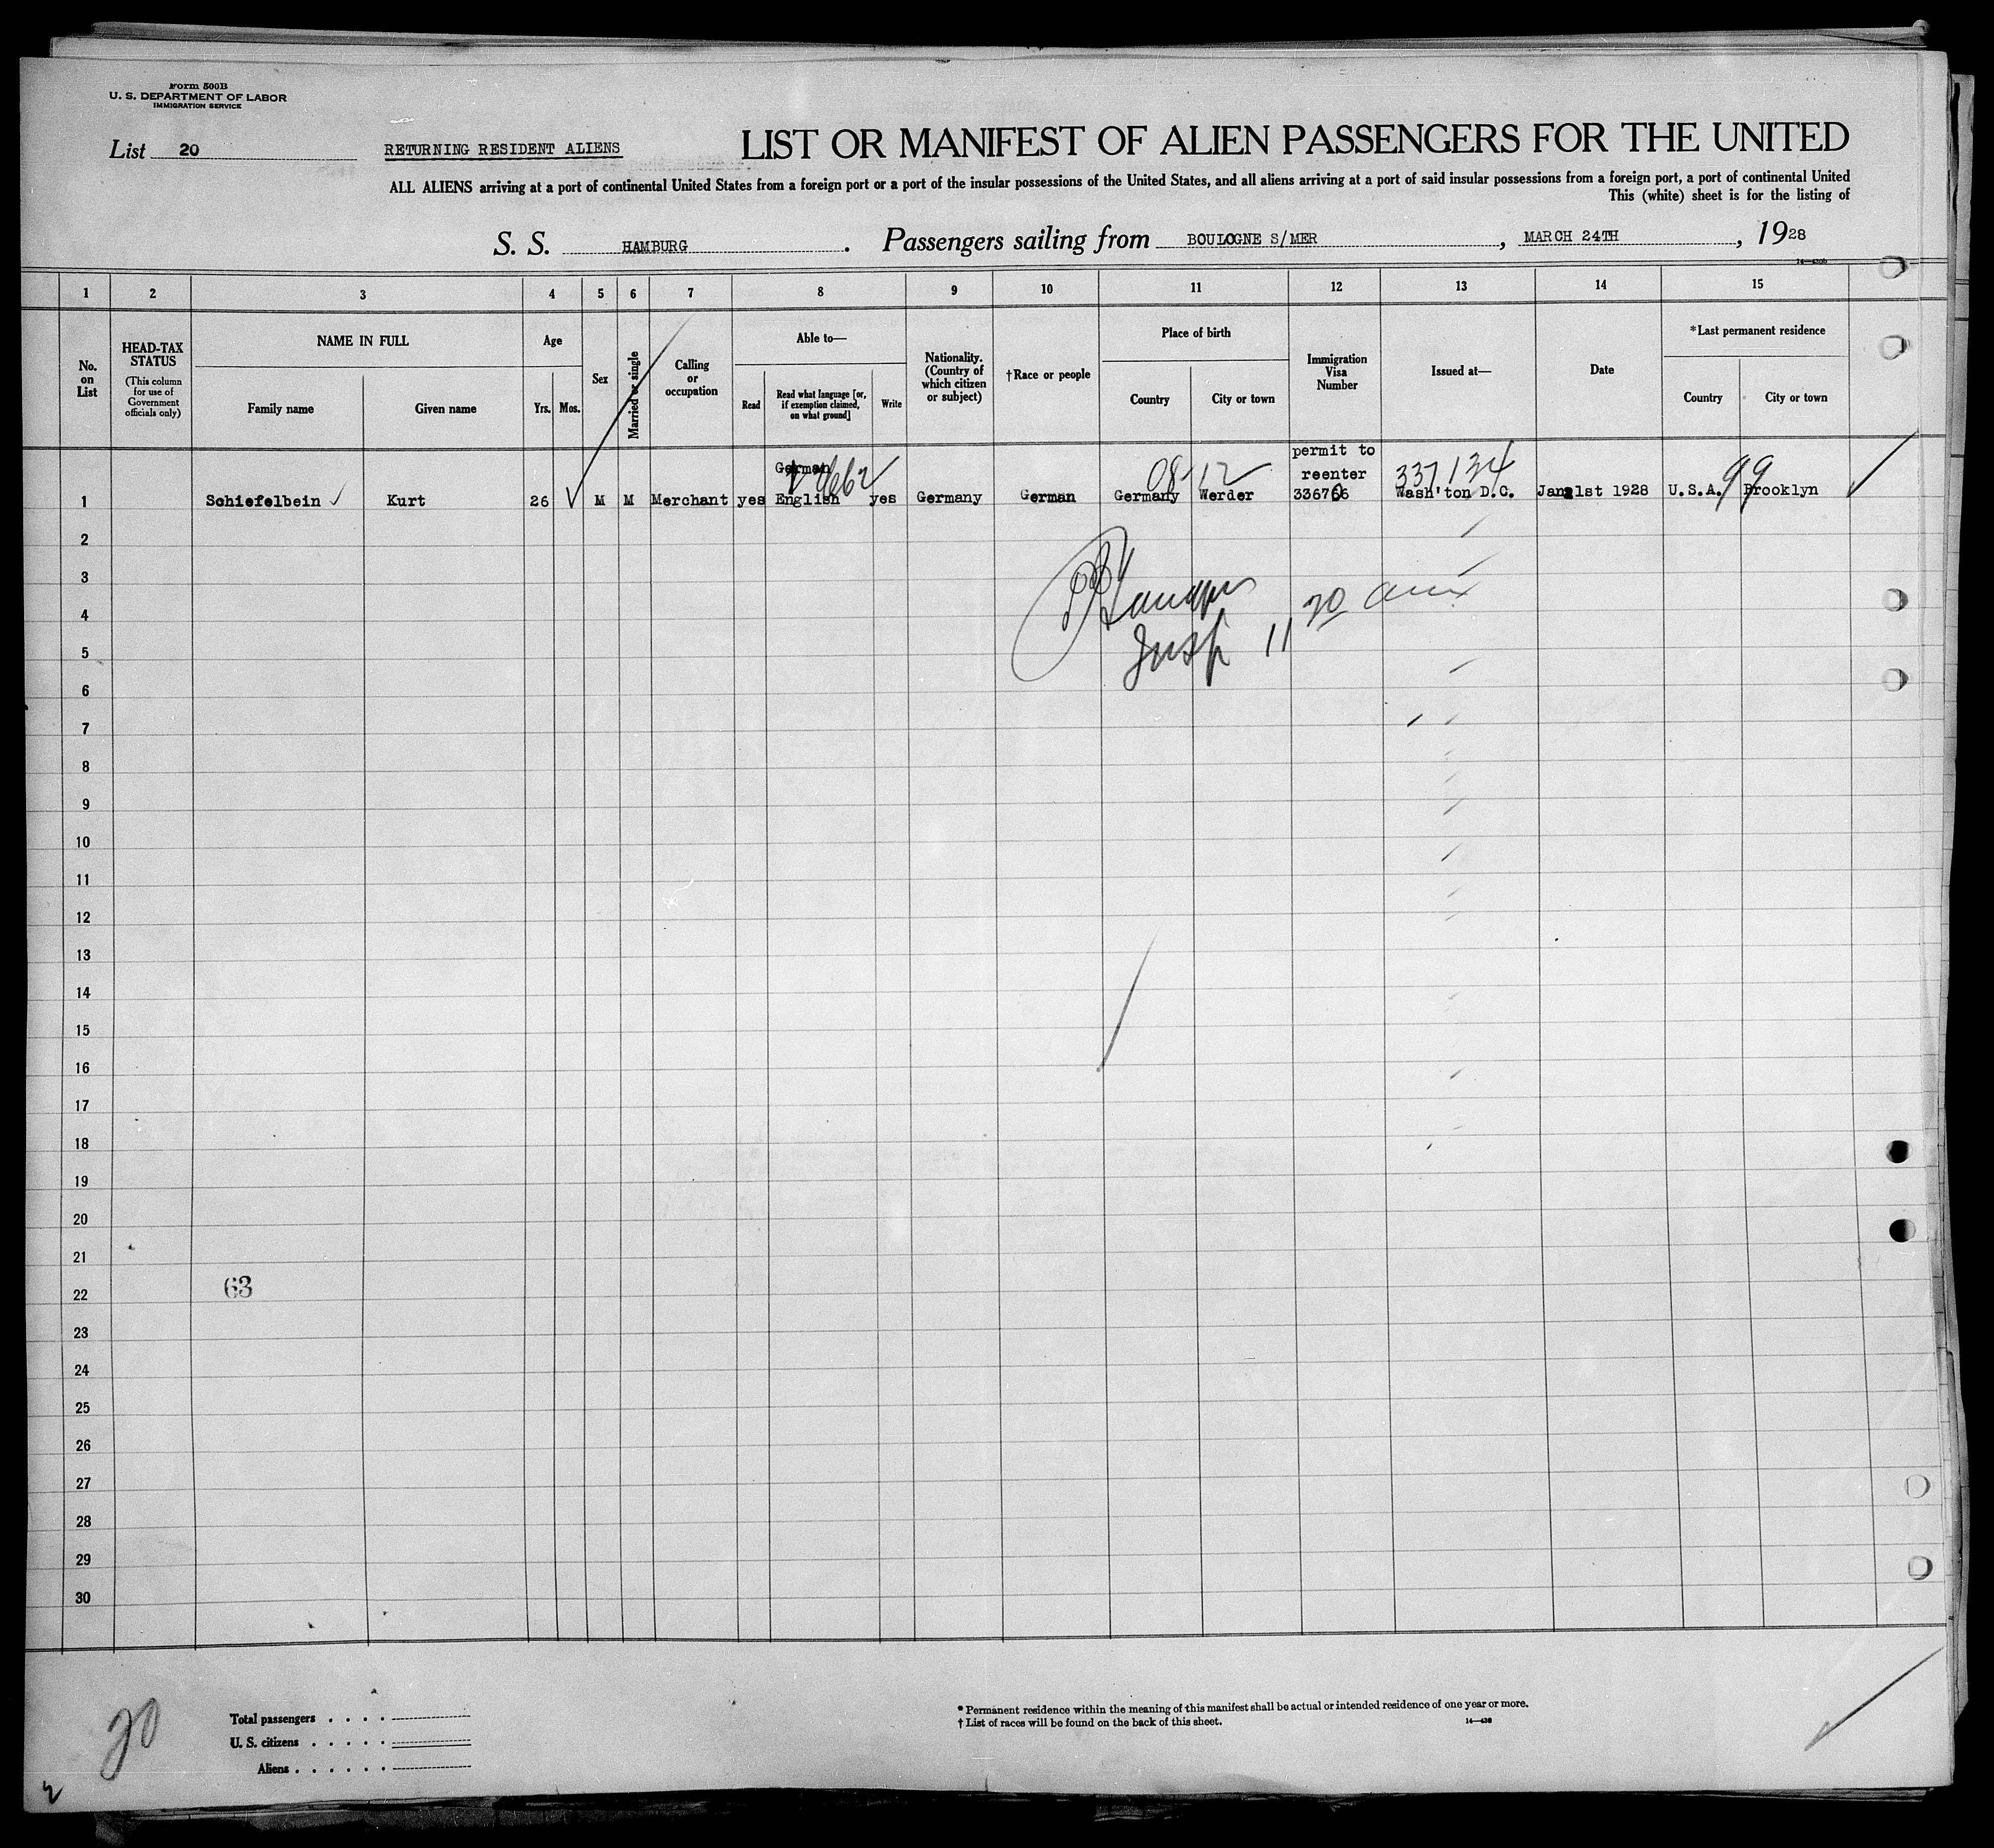 Form 500B
U. S. DEPARTMENT OF LABOR
IMMIGRATION SERVICE
List 20
RETURNING RESIDENT ALIENS
LIST OR MANIFEST OF ALIEN PASSENGERS FOR THE UNITED
ALL ALIENS arriving at a port of continental United States from a foreign port or a port of the insular possessions of the United States, and all aliens arriving at a port of said insular possessions from a foreign port, a port of continental United
This (white) sheet is for the listing of
S. S. HAMBURG. Passengers sailing from BOULOGNE S/MER, MARCH 24TH, 1928
1 2 3 4 5 6 7 8 9 10 11 12 13 14 15
No. on List
HEAD-TAX STATUS
(This column for use of Government officials only)
NAME IN FULL
Family name
Given name
Age
Yrs. Mos.
Sex
Married or single
Calling or occupation
Able to—
Read
Read what language [or, if exemption claimed, on what ground]
Write
Nationality. (Country of which citizen or subject)
†Race or people
Place of birth
Country
City or town
Immigration Visa Number
Issued at—
Date
*Last permanent residence
Country
City or town
permit to
German
08-12
reenter
337134
99
1 Schiefelbein Kurt 26 M M Merchant yes English yes Germany German Germany Werder Wash'ton D.C. 1928 U.S.A. Brooklyn
2
3
4
Insp 11
5
6
7
8
9
10
11
12
13
14
15
16
17
18
19
20
21
63
22
23
24
25
26
27
28
29
30
20
Total passengers
U. S. citizens
Aliens
* Permanent residence within the meaning of this manifest shall be actual or intended residence of one year or more.
† List of races will be found on the back of this sheet.
14—430